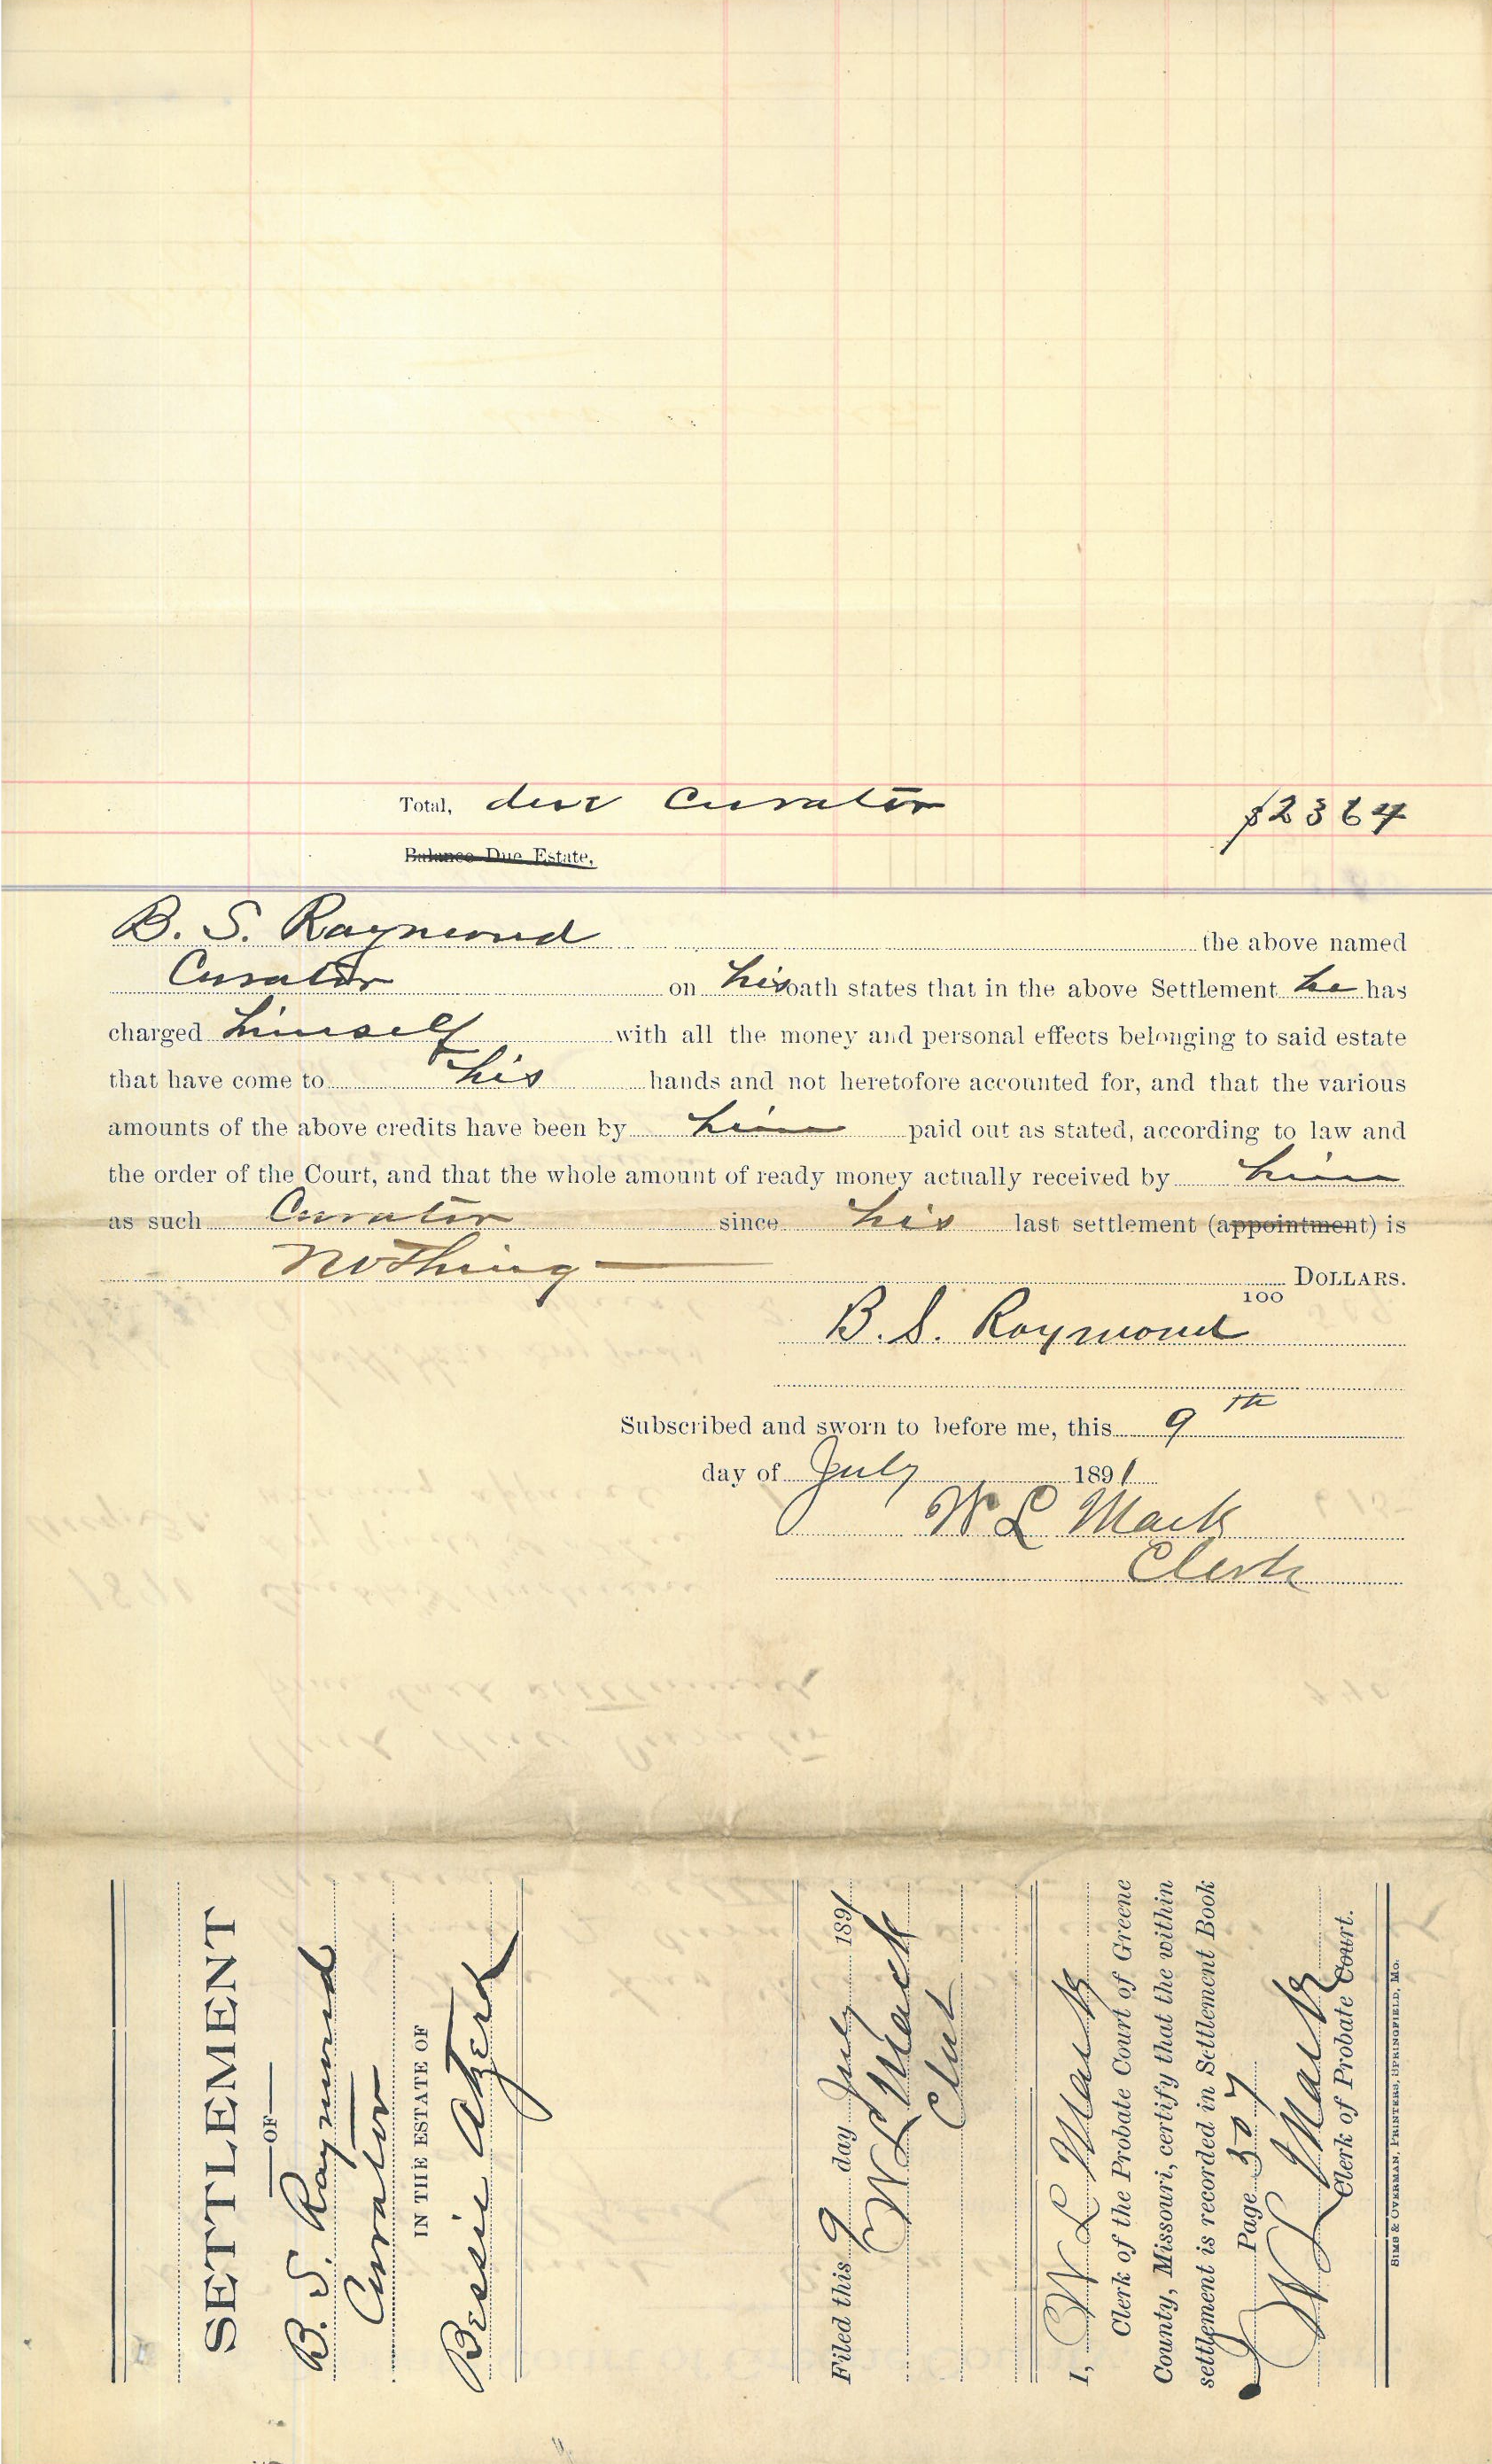 Total, due Curator $23 64
Balance Due Estate,
B. S. Raymond the above named
Curator on his oath states that in the above Settlement he has
charged himself with all the money and personal effects belonging to said estate
that have come to his hands and not heretofore accounted for, and that the various
amounts of the above credits have been by him paid out as stated, according to law and
the order of the Court, and that the whole amount of ready money actually received by him
as such Curator since his last settlement (appointment) is
Nothing DOLLARS.
100
B. S. Raymond
Subscribed and sworn to before me, this 9th
day of July 1891
W L Mack
Clerk
SETTLEMENT
OF
B. S. Raymond
Curator
IN THE ESTATE OF
Bessie
Filed this 9 day July 1891
W L Mack
Clerk
I, W L Mack
Clerk of the Probate Court of Greene
County, Missouri, certify that the within
settlement is recorded in Settlement Book
J Page 307
W L Mack
Clerk of Probate Court.
SIMS & OVERMAN, PRINTERS, SPRINGFIELD, MO.